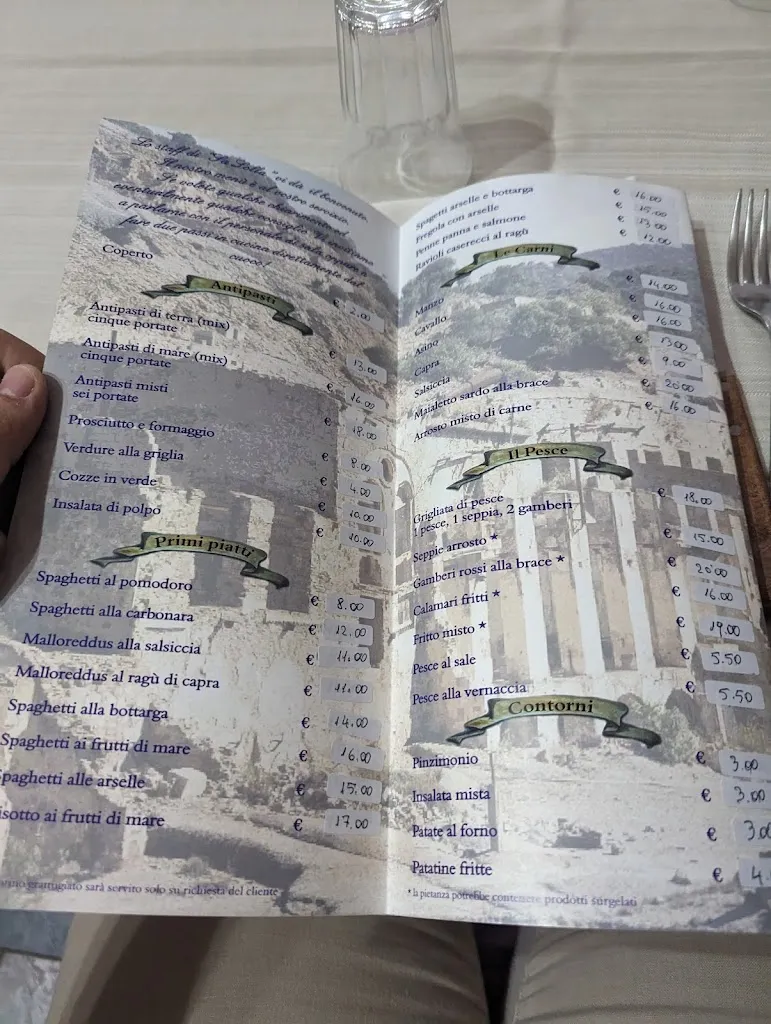 Lo staff de "Sa Lolla" vi da il benvenuto.
Il nostro menù è al nostro servizio.
Se volete qualche chiarimento o
eventualmente qualche consiglio vi invitiamo
a parlarne con il personale di sala oppure a
fare due passi in cucina direttamente dal
cuoco!
Coperto € 2.00
Antipasti
Antipasti di terra (mix)
cinque portate € 13.00
Antipasti di mare (mix)
cinque portate € 16.00
Antipasti misti
sei portate € 18.00
Prosciutto e formaggio € 8.00
Verdure alla griglia € 4.00
Cozze in verde € 10.00
Insalata di polpo € 10.00
Primi piatti
Spaghetti al pomodoro € 8.00
Spaghetti alla carbonara € 12.00
Malloreddus alla salsiccia € 11.00
Malloreddus al ragù di capra € 11.00
Spaghetti alla bottarga € 14.00
Spaghetti ai frutti di mare € 16.00
paghetti alle arselle € 15.00
isotto ai frutti di mare € 17.00
grattugiato sarà servito solo su richiesta del cliente
Spagetti arselle e bottarga € 16.00
Fregola con arselle € 15.00
Penne panna e salmone € 13.00
Ravioli caserecci al ragù € 12.00
Le Carni
Manzo € 14.00
Cavallo € 16.00
Asino € 16.00
Capra € 13.00
Salsiccia € 9.00
Maialetto sardo alla brace € 20.00
Arrosto misto di carne € 16.00
Il Pesce
Grigliata di pesce
1 pesce, 1 seppia, 2 gamberi € 18.00
Seppie arrosto * € 15.00
Gamberi rossi alla brace * € 20.00
Calamari fritti * € 16.00
Fritto misto * € 19.00
Pesce al sale € 5.50
Pesce alla vernaccia € 5.50
Contorni
Pinzimonio € 3.00
Insalata mista € 3.00
Patate al forno € 3.0
Patatine fritte € 4.
* la pietanza potrebbe contenere prodotti surgelati